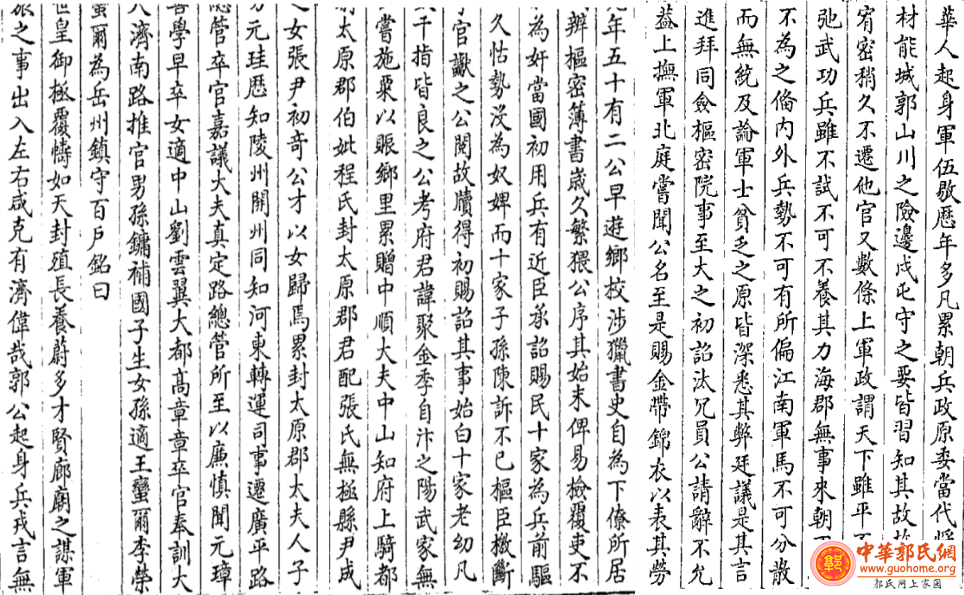 華人起身軍伍敭歷年多凡累朝兵政原委當代
材能城郭山川之險邊戍屯守之要皆習知其故
宥密稍久不遷他官又數條上軍政謂天下雖平
弛武功兵雖不試不可不養其力海郡無事來朝
不為之偹內外兵勢不可有所偏江南軍馬不可分散
而無統及論軍士貧乏之原皆深悉其弊廷議是其言
進拜同僉樞密院事至大之初詔汰冗員公請辭不允
葢上撫軍北庭嘗聞公名至是賜金帶錦衣以表其勞
年五十有二公早遊鄉校涉獵書史自為下僚所居
辨樞密簿書歲久繁猥公序其始末俾易檢覆吏不
為奸當國初用兵有近臣承詔賜民十家為兵前驅
久怙勢沒為奴婢而十家子孫陳訴不已樞臣檄斷
官讞之公閱故牘得初賜詔其事始白十家老幼凡
千指皆良之公考府君諱聚金季自汴之陽武家無
嘗施粟以賑鄉里累贈中順大夫中山知府上騎都
太原郡伯妣程氏封太原郡君配張氏無極縣尹成
之女張尹初竒公才以女歸焉累封太原郡太夫人子
元珪歷知陵州關州同知河東轉運司事遷廣平路
總管卒官嘉議大夫真定路總管所至以廉慎聞元璋
學早卒女適中山劉雲翼大都高章章卒官奉訓大
濟南路推官男孫鏞補國子生女孫適王蠻爾李榮
蠻爾為岳州鎮守百戶銘曰
世皇御極覆幬如天封殖長養蔚多才賢廊廟之謀軍
旅之事出入左右咸克有濟偉哉郭公起身兵戎言無
中華郭氏網
www.guohome.org
郭氏网上家园